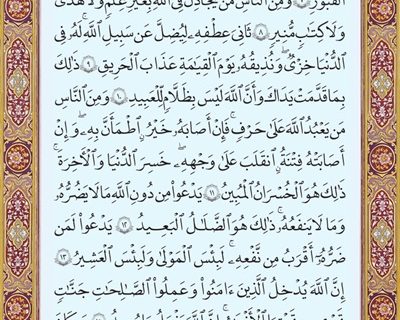 ٱلۡقُبُورِ ٧ وَمِنَ ٱلنَّاسِ مَن يُجَٰدِلُ فِي ٱللَّهِ بِغَيۡرِ عِلۡمٖ وَلَا هُدٗى
وَلَا كِتَٰبٖ مُّنِيرٖ ٨ ثَانِيَ عِطۡفِهِۦ لِيُضِلَّ عَن سَبِيلِ ٱللَّهِۖ لَهُۥ فِي
ٱلدُّنۡيَا خِزۡيٞۖ وَنُذِيقُهُۥ يَوۡمَ ٱلۡقِيَٰمَةِ عَذَابَ ٱلۡحَرِيقِ ٩ ذَٰلِكَ
بِمَا قَدَّمَتۡ يَدَاكَ وَأَنَّ ٱللَّهَ لَيۡسَ بِظَلَّٰمٖ لِّلۡعَبِيدِ ١٠ وَمِنَ ٱلنَّاسِ
مَن يَعۡبُدُ ٱللَّهَ عَلَىٰ حَرۡفٖۖ فَإِنۡ أَصَابَهُۥ خَيۡرٌ ٱطۡمَأَنَّ بِهِۦۖ وَإِنۡ
أَصَابَتۡهُ فِتۡنَةٌ ٱنقَلَبَ عَلَىٰ وَجۡهِهِۦ خَسِرَ ٱلدُّنۡيَا وَٱلۡأٓخِرَةَۚ
ذَٰلِكَ هُوَ ٱلۡخُسۡرَانُ ٱلۡمُبِينُ ١١ يَدۡعُواْ مِن دُونِ ٱللَّهِ مَا لَا يَضُرُّهُۥ
وَمَا لَا يَنفَعُهُۥۚ ذَٰلِكَ هُوَ ٱلضَّلَٰلُ ٱلۡبَعِيدُ ١٢ يَدۡعُواْ لَمَن
ضَرُّهُۥٓ أَقۡرَبُ مِن نَّفۡعِهِۦۚ لَبِئۡسَ ٱلۡمَوۡلَىٰ وَلَبِئۡسَ ٱلۡعَشِيرُ ١٣
إِنَّ ٱللَّهَ يُدۡخِلُ ٱلَّذِينَ ءَامَنُواْ وَعَمِلُواْ ٱلصَّٰلِحَٰتِ جَنَّٰتٖ